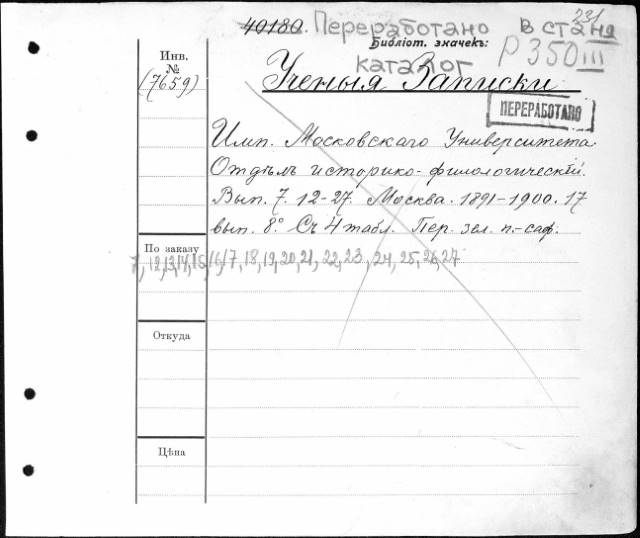 231
40180. Переработано в стана
Библіот. значекъ:
Р 350 III
каталог
Инв.
№
(7659)
Ученыя Записки
ПЕРЕРАБОТАНО
Имп. Московскаго Университета
Отдѣлъ историко-филологическій.
Вып. 7. 12-27. Москва. 1891-1900. 17
вып. 8º. Съ 4 табл. Пер. зел. п.-саф.
По заказу
7, 12, 13, 14, 15, 16, 17, 18, 19, 20, 21, 22, 23, 24, 25, 26, 27
Откуда
Цѣна